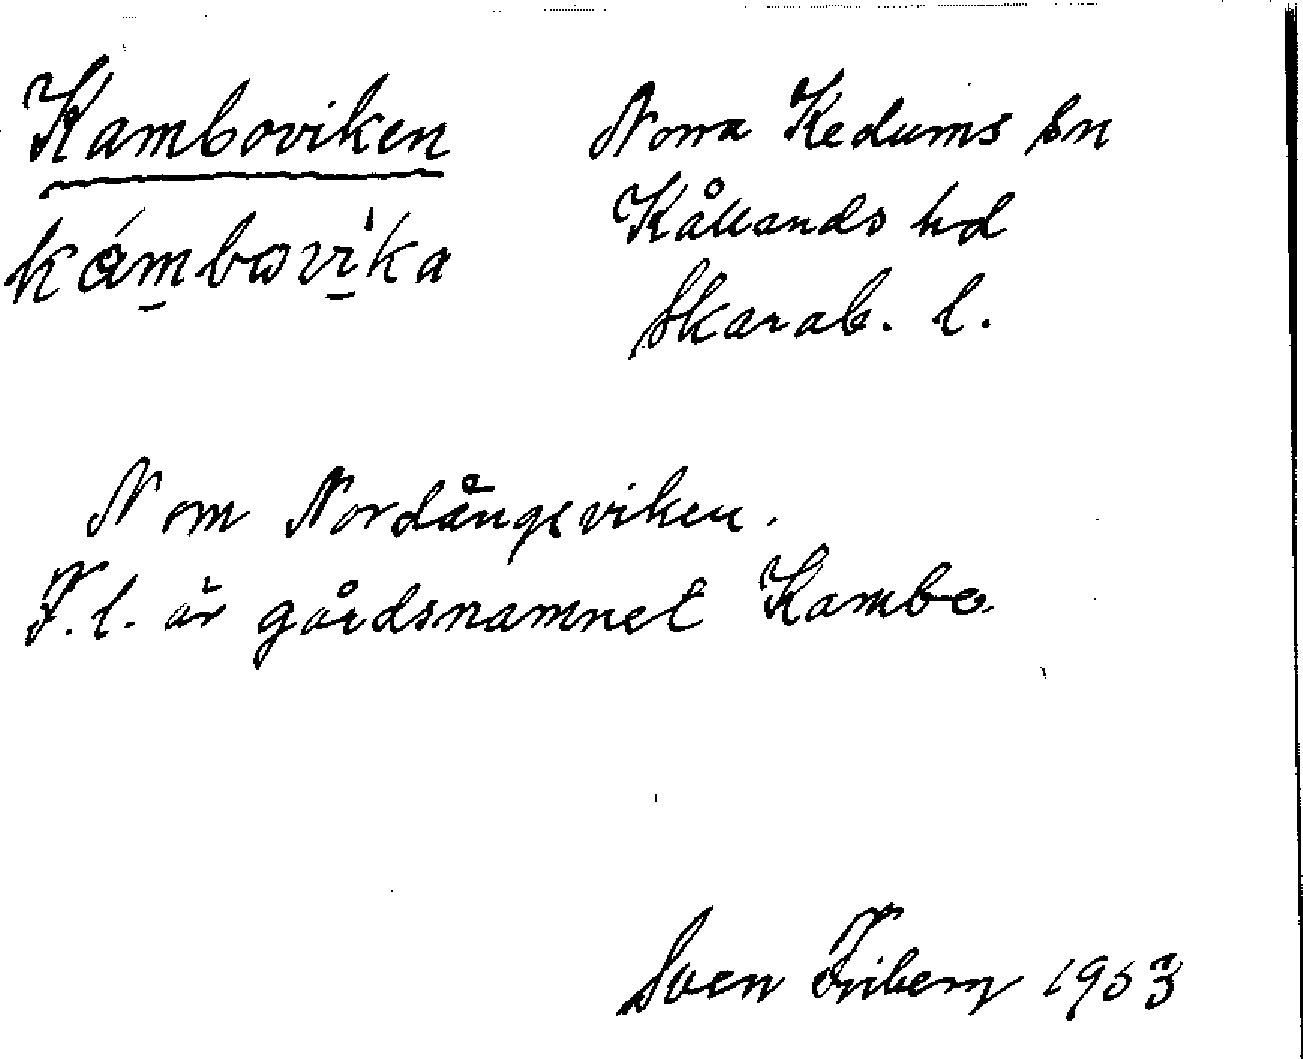 Kamboviken
kámbovi̍ka
Norra Kedums sn
Kållands hd
Skarab. l.
N om Nordängsviken.
F.l. är gårdsnamnet Kambo
Sven Friberg 1953